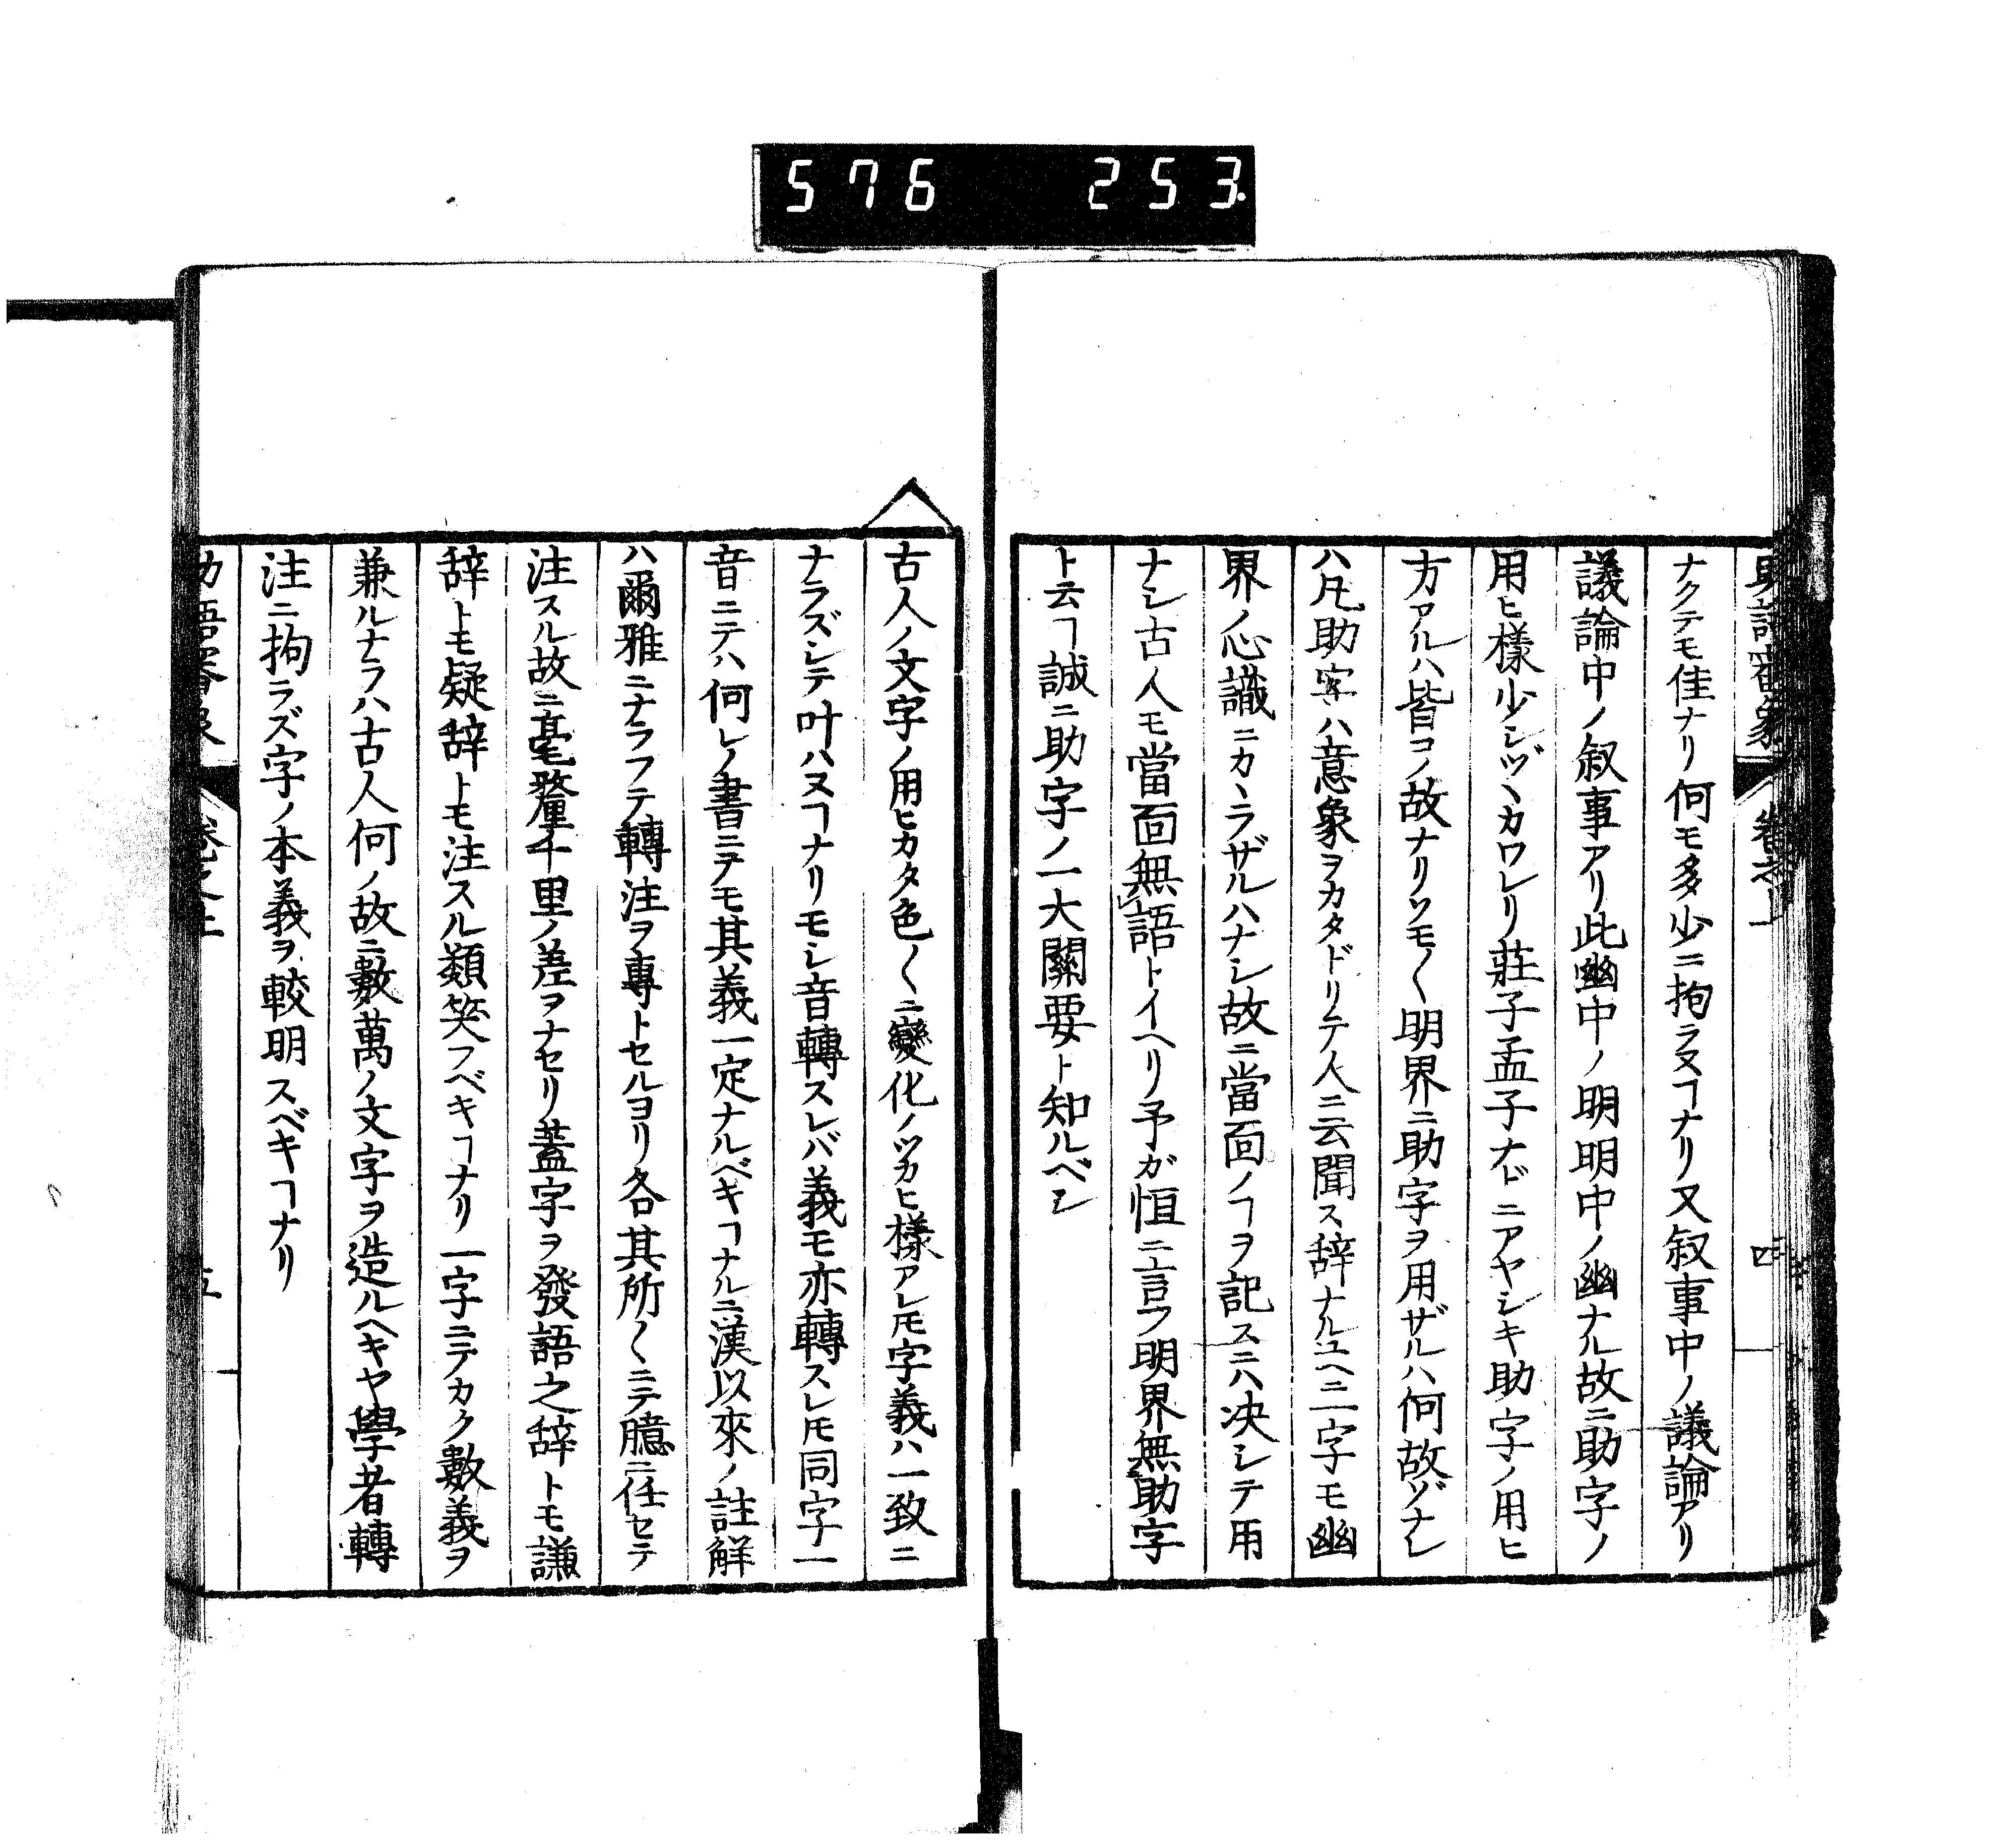 576 253
ナクテモ佳ナリ何モ多少ニ拘ラヌヿナリ又叙事中ノ議論アリ
議論中ノ叙事アリ此幽中ノ明明中ノ幽ナル故ニ助字ノ
用ヒ樣少シヅヽカワレリ莊子孟子ナドニアヤシキ助字ノ用ヒ
方アルハ皆コノ故ナリソモ〱明界ニ助字ヲ用ザルハ何故ゾナレ
ハ凡助字ハ意象ヲカタドリテ人ニ云聞ス辞ナルユヘ一二字モ幽
界ノ心識ニカヽラザルハナシ故ニ當面ノヿヲ記スニハ决シテ用
ナシ古人モ當面無語トイヘリ予ガ恒ニ言フ明界無助字
ト云ヿ誠ニ助字ノ一大關要ト知ルベシ
古人ノ文字ノ用ヒカタ色〱ニ變化ノツカヒ樣アレ𪜈字義ハ一致ニ
ナラズシテ叶ハヌヿナリモシ音轉スレバ義モ亦轉スレ𪜈同字一
音ニテハ何レノ書ニテモ其義一定ナルベキヿナルニ漢以來ノ註解
ハ爾雅ニナラフテ轉注ヲ專トセルヨリ各其所〱ニテ臆ニ任セテ
注スル故ニ毫釐千里ノ差ヲナセリ蓋字ヲ發語之辞トモ謙
辞トモ疑辞トモ注スル類笑フベキヿナリ一字ニテカク數義ヲ
兼ルナラハ古人何ノ故ニ數萬ノ文字ヲ造ルヘキヤ學者轉
注ニ拘ラズ字ノ本義ヲ較明スベキヿナリ